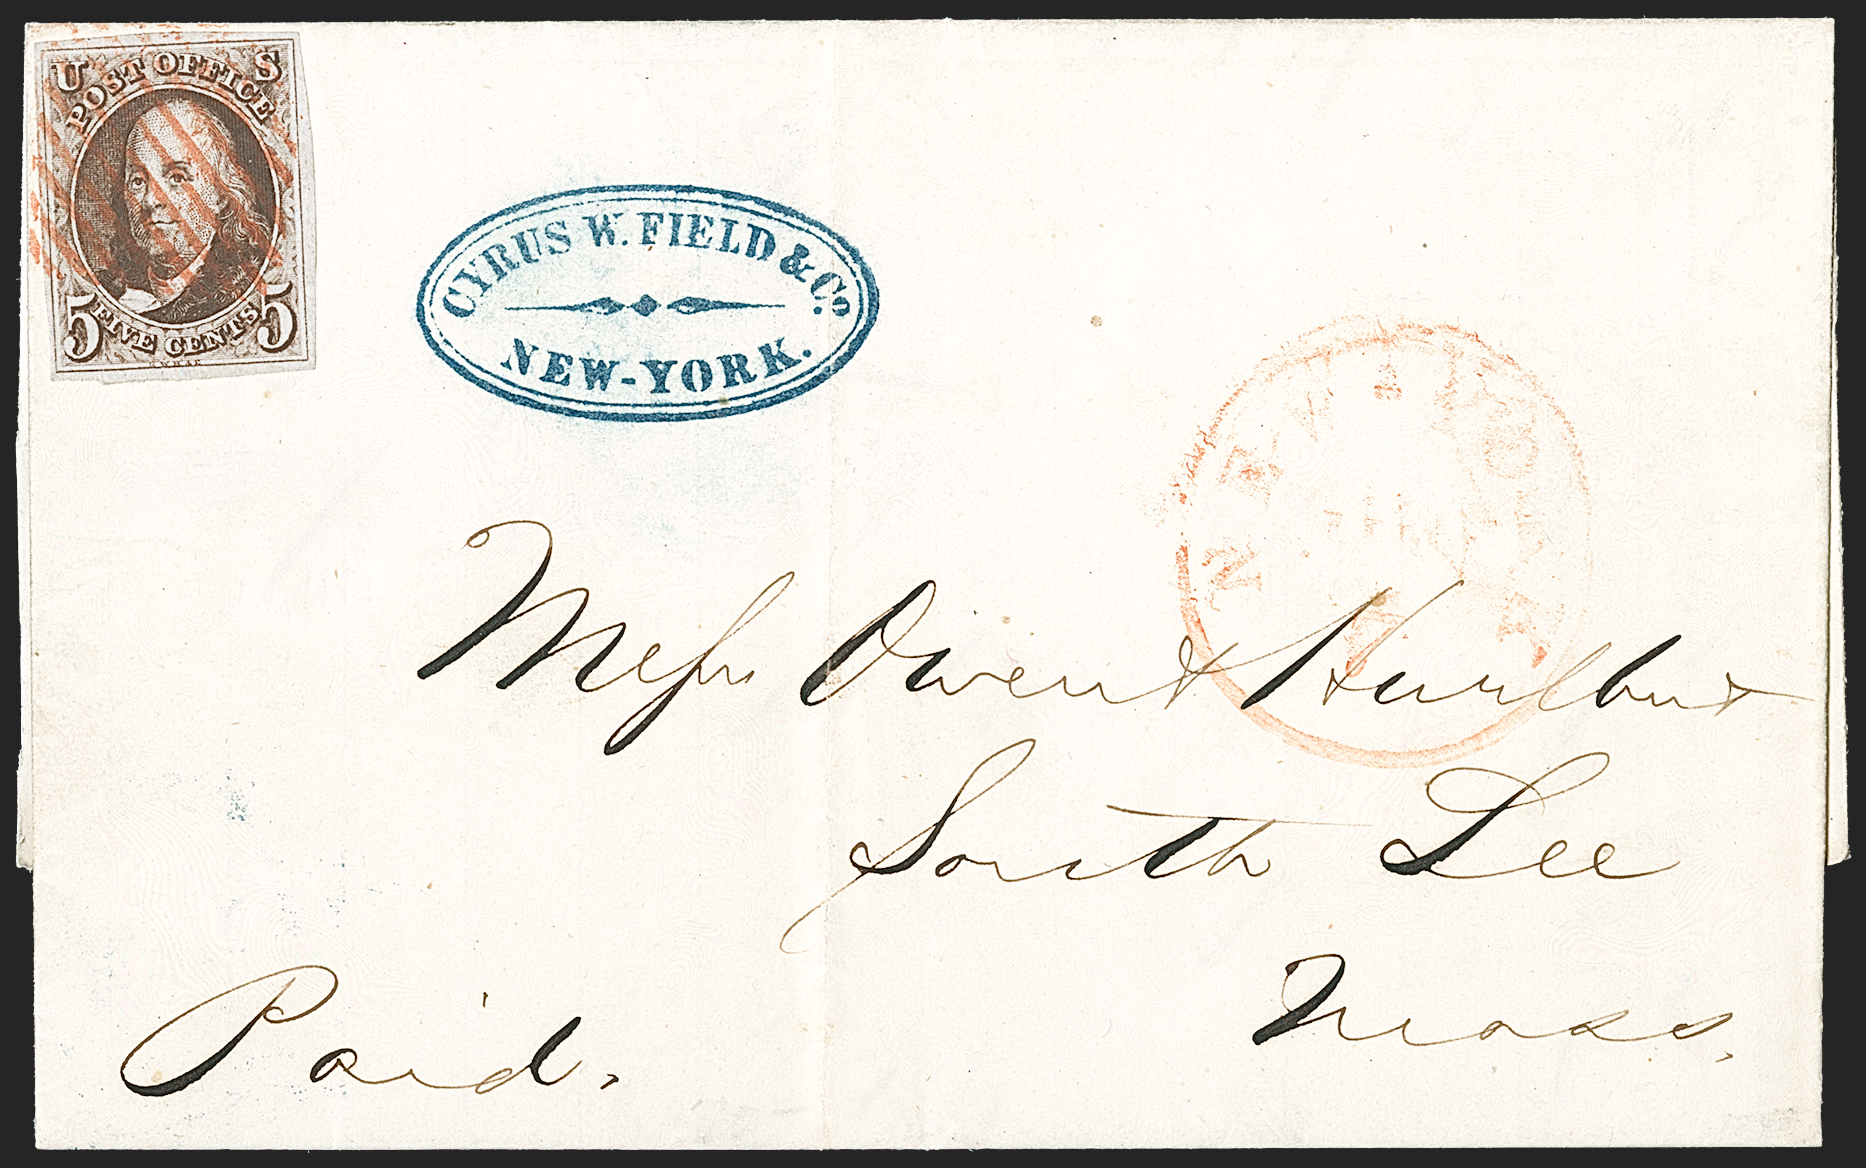 U S
POST OFFICE
5 FIVE CENTS 5
CYRUS W. FIELD & Co.
NEW-YORK.
NEW-YORK
Mess. Owen & Hurlbut
South Lee
Mass.
Paid.